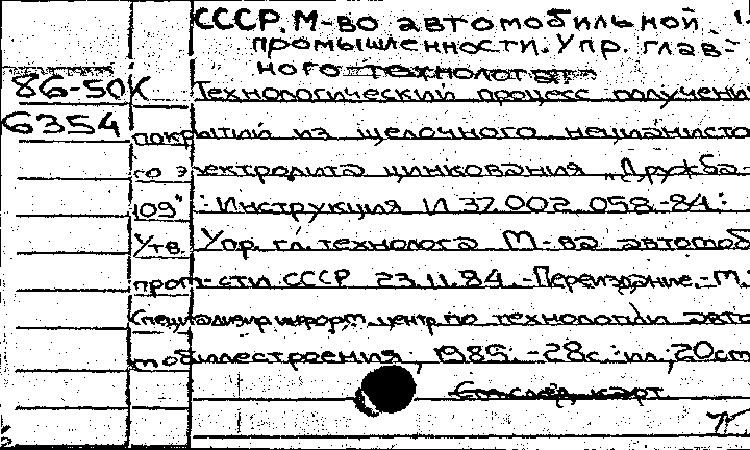 СССР. М-во автомобильной
промышленности. Упр. глав-
ного технолога
86-50К Технологический процесс получени
6354 покрытий из щелочного нецианисто
го электролита цинкования „Дружба-
109" : Инструкция И 37.002.058-84:
Утв. Упр. гл. технолога М-ва автомоб
пром-сти СССР 23.11.84.-Переиздание.-М.
Специализир. информ. центр по технологии авто
мобилестроения, 1985. -28с.:ил, 20см
См. след. карт